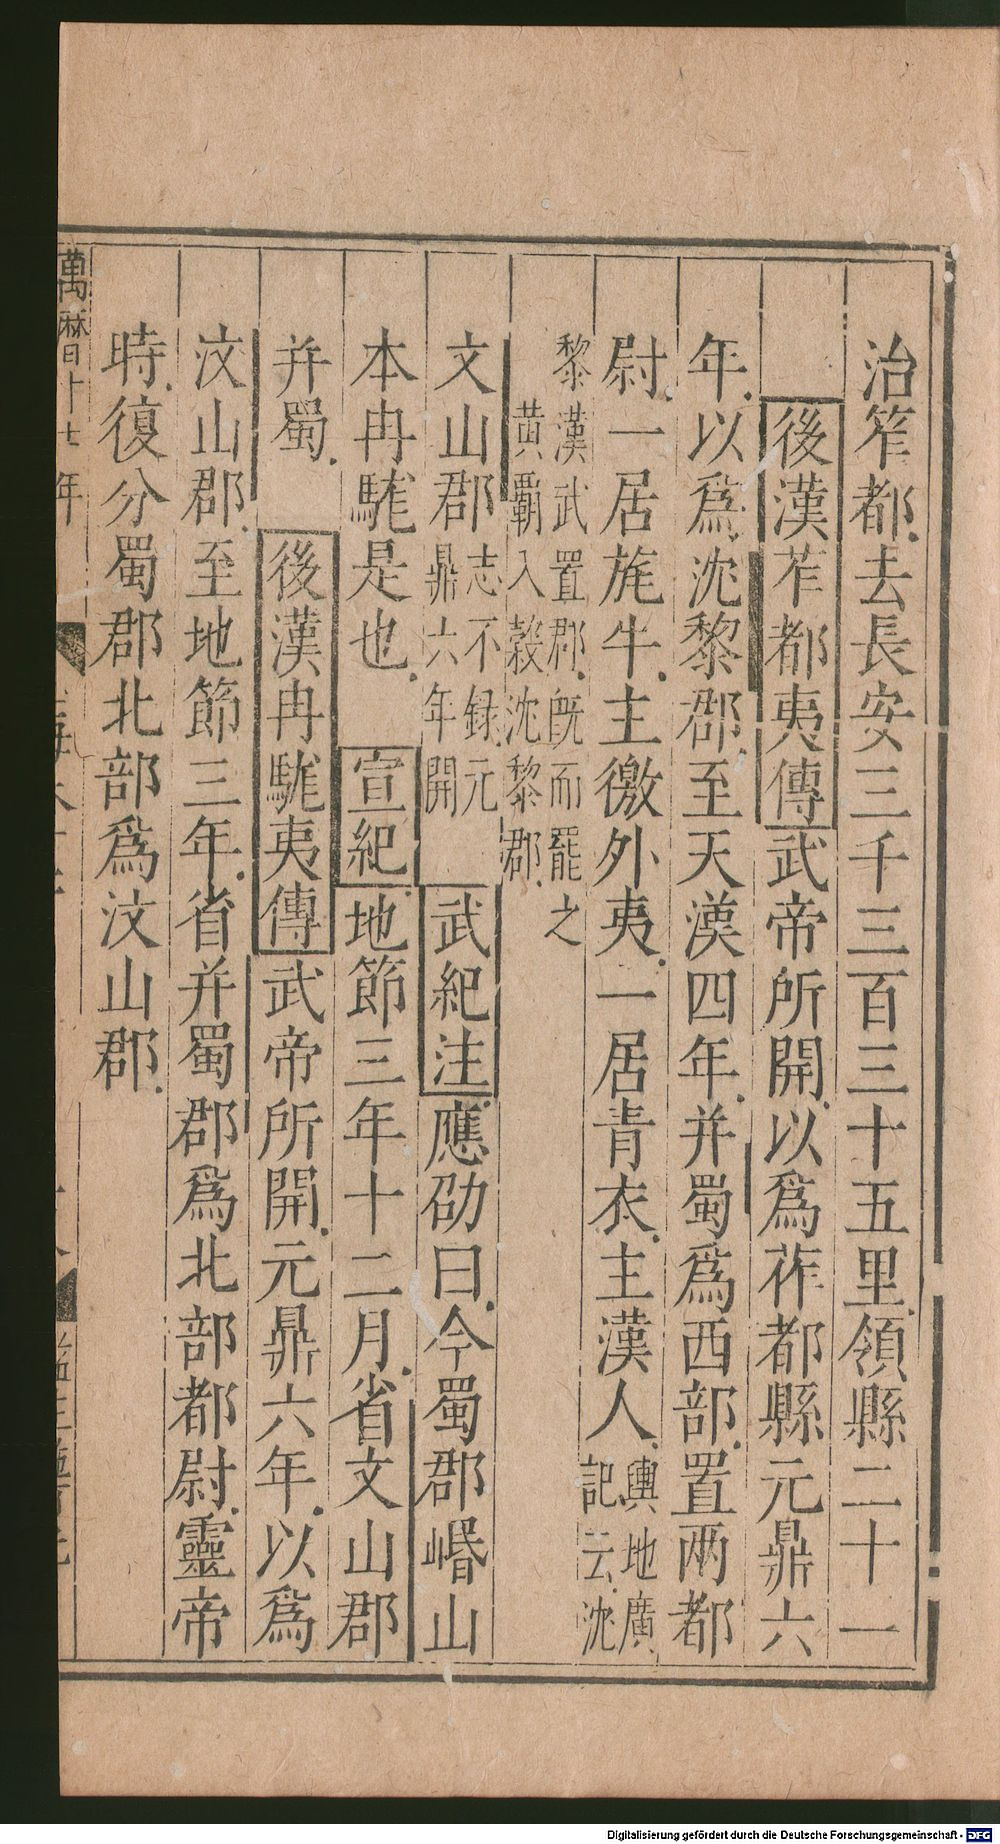 治筰都去長安三千三百三十五里領縣二十一
後漢莋都夷傳武帝所開以爲莋都縣元鼎六
年以爲沈黎郡至天漢四年并蜀爲西部置兩都
尉一居旄牛主徼外夷一居青衣主漢人輿地廣記云沈
黎漢武置郡既而罷之
黄覇入榖沈黎郡
文山郡志不録元鼎六年開武紀注應劭曰今蜀郡㟭山
本冉駹是也宣紀地節三年十二月省文山郡
并蜀後漢冉駹夷傳武帝所開元鼎六年以爲
汶山郡至地節三年省并蜀郡爲北部都尉靈帝
時復分蜀郡北部爲汶山郡
萬曆十七年
Digitalisierung gefördert durch die Deutsche Forschungsgemeinschaft - DFG